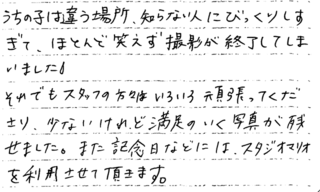 うちの子は違う場所、知らない人にびっくりしす
ぎて、ほとんど笑えず撮影が終了してしま
いました。
それでもスタッフの方々はいろいろ頑張ってくだ
さり、少ないけれど満足のいく写真が残
せました。また記念日などには、スタジオマリオ
を利用させて頂きます。